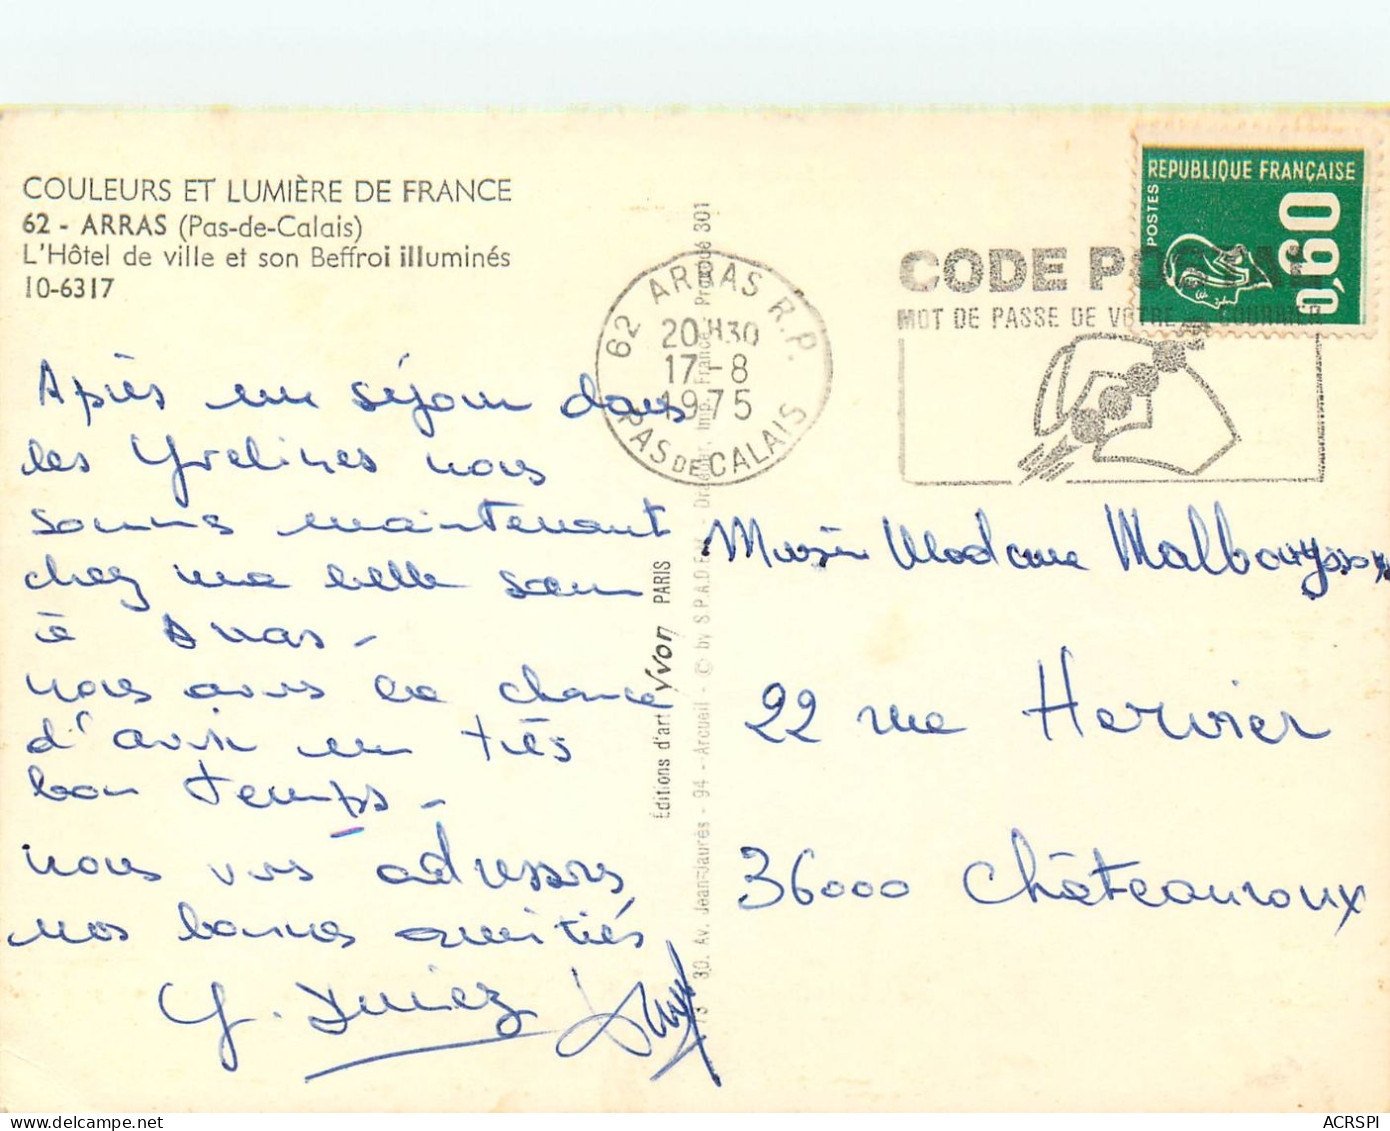 COULEURS ET LUMIÈRE DE FRANCE
62 - ARRAS (Pas-de-Calais)
L'Hôtel de ville et son Beffroi illuminés
10-6317
REPUBLIQUE FRANÇAISE
POSTES
0,60
CODE POSTAL
MOT DE PASSE DE VOTRE COURRIER
62 ARRAS R.P.
20H30
17-8
1975
PAS DE CALAIS
Après un séjour dans
les Yvelines nous
sommes maintenant
chez ma belle sœur
à Arras -
nous avons la chance
d'avoir un très
bon temps -
nous vous adressons
nos bonnes amitiés
Éditions d'art Yvon PARIS
30, Av. Jean-Jaurès - 94 - Arcueil - © by S.P.A.D.E.M. - Draeger, Imp. France - Proqué 301
Madame Malbouyssou
22 rue Hervier
36000 Châteauroux
ACRSPI